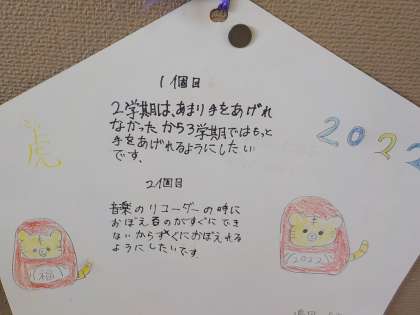 1個目
2学期は、あまり手をあげれ
なかったから3学期ではもっと
手をあげれるようにしたい
です。
2022
虎
2個目
音楽のリコーダーの時に
おぼえるのがすぐにでき
ないからすぐにおぼえれる
ようにしたいです
福
2022